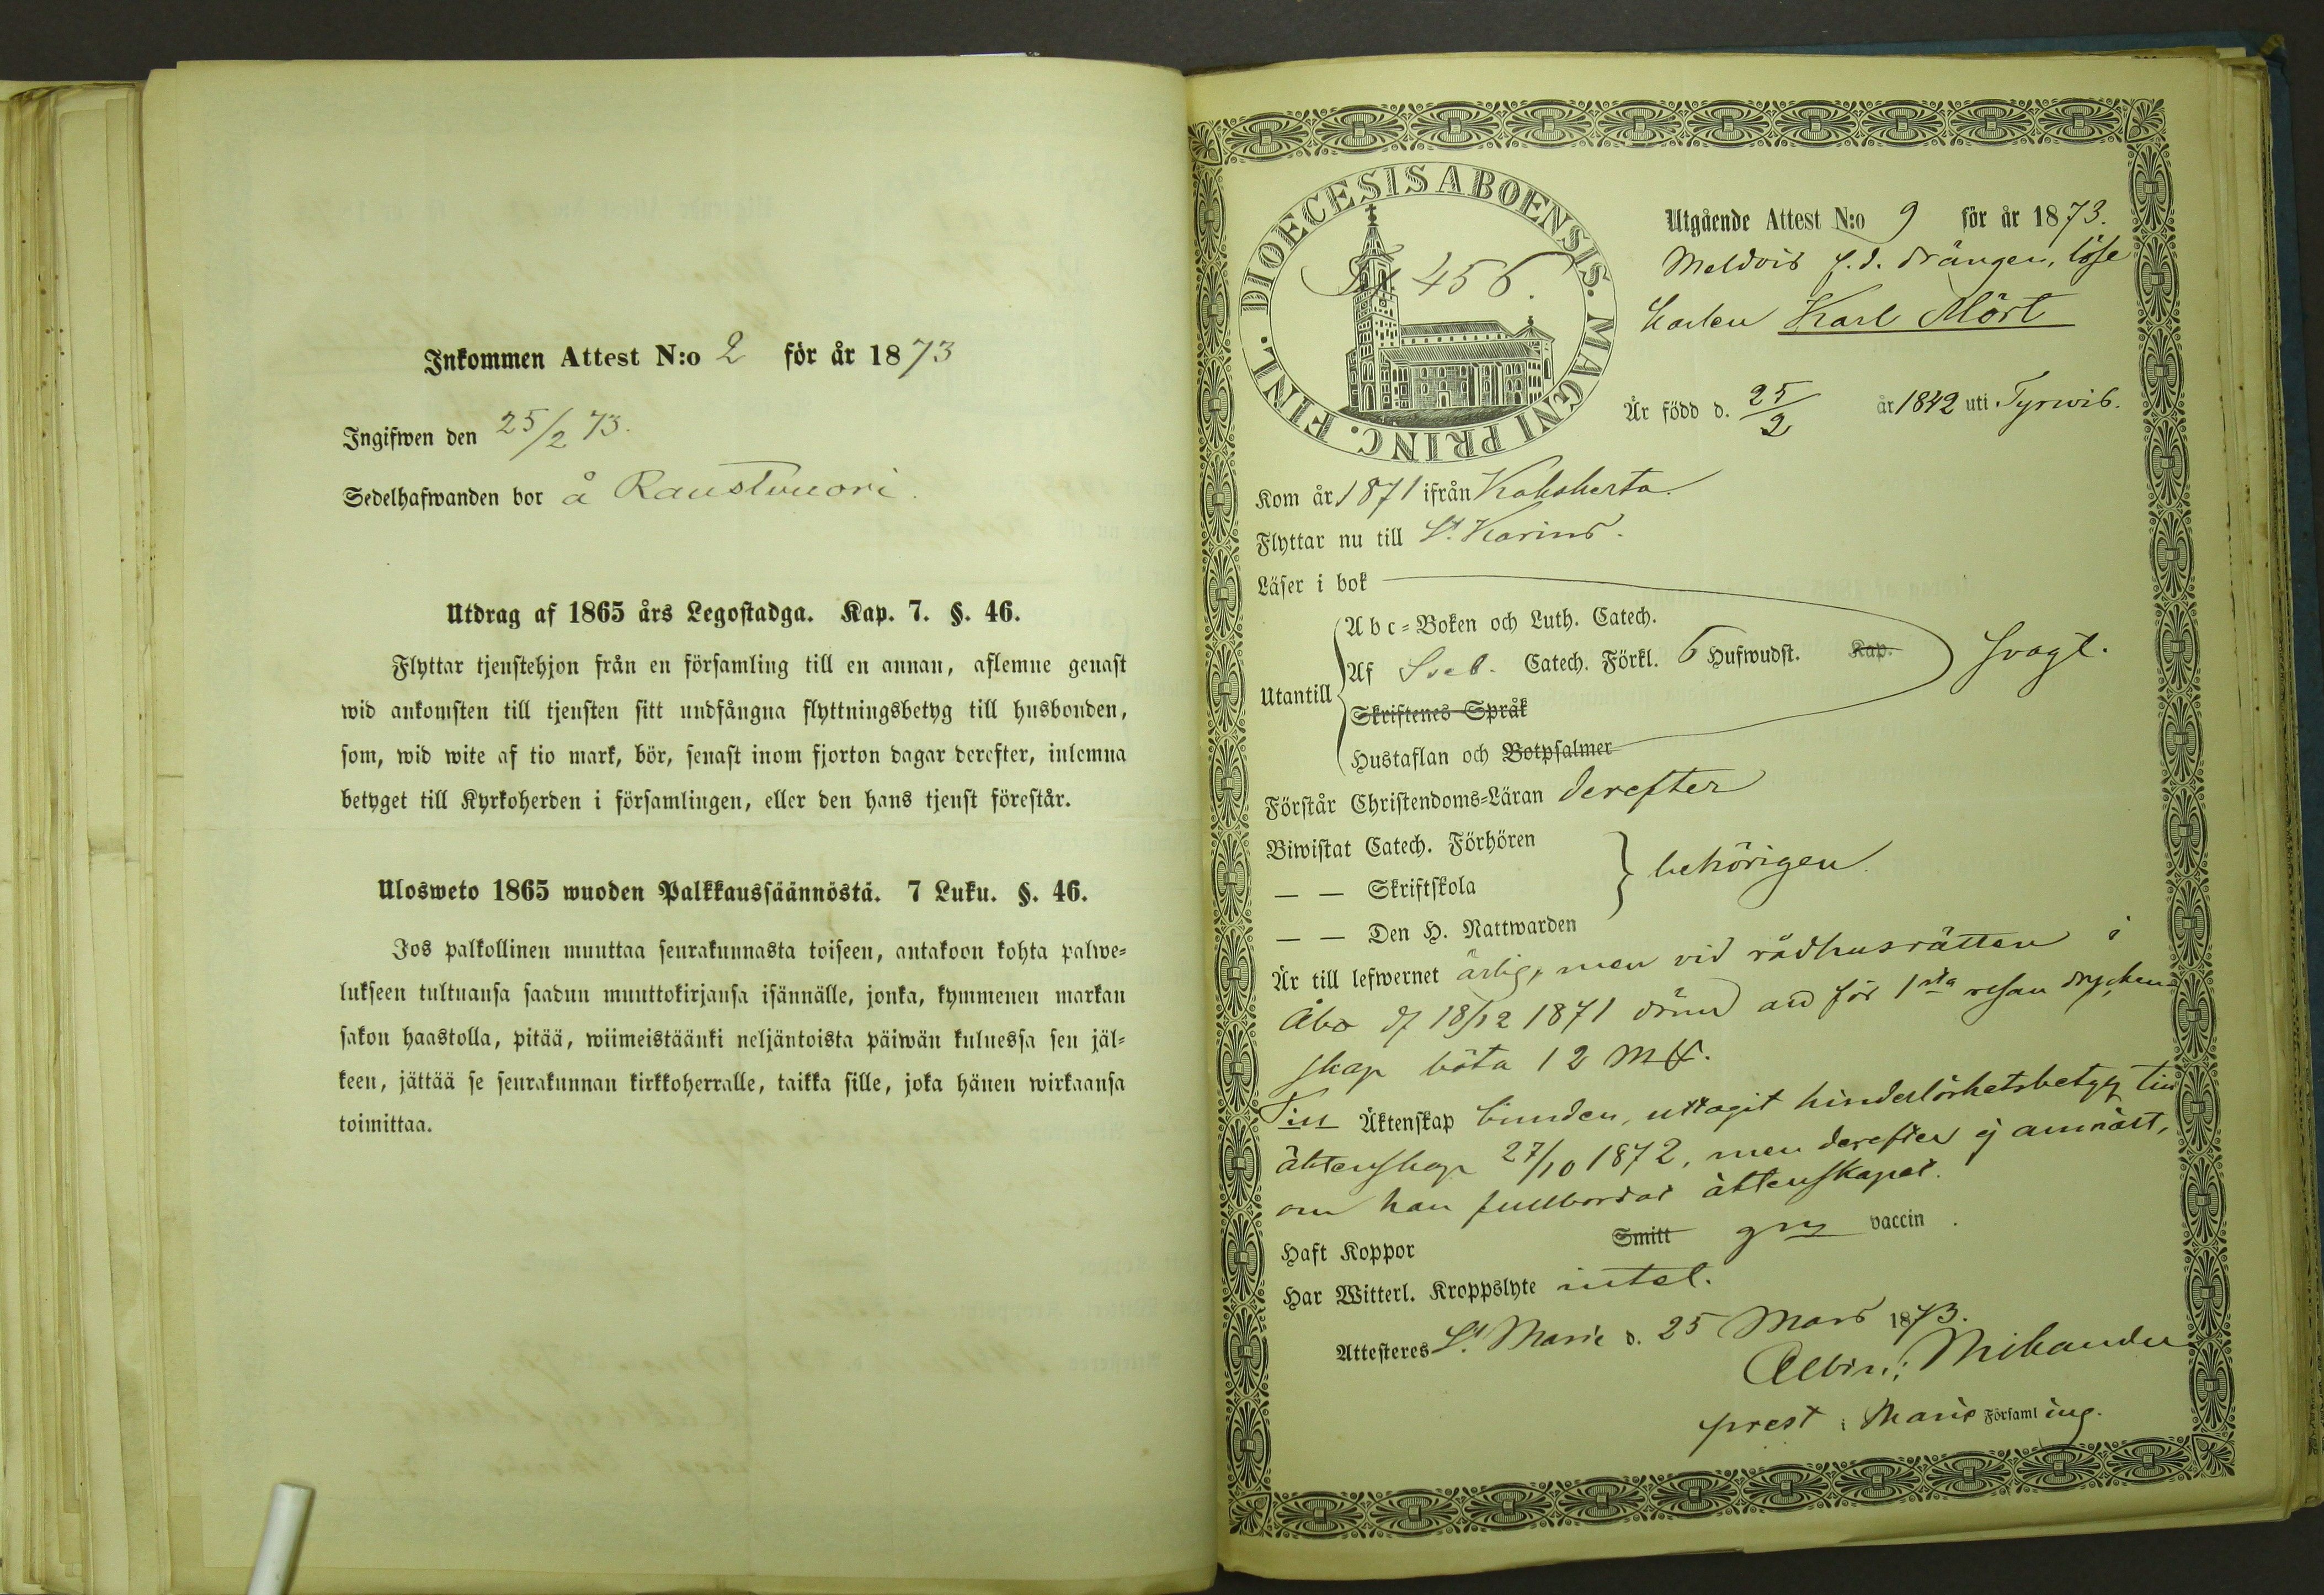 Inkommen Attest N:o 2 för år 1873
Ingifwen den 25/2 73.
Sedelhafwanden bor å Raustvuori.
Utdrag af 1865 års Legostadga. Kap. 7. §. 46.
Flyttar tjenstehjon från en församling till en annan, aflemne genast
wid ankomsten till tjensten sitt undfångna flyttningsbetyg till husbonden,
som, wid wite af tio mark, bör, senast inom fjorton dagar derefter, inlemna
betyget till Kyrkoherden i församlingen, eller den hans tjenst förestår.
Ulosweto 1865 wuoden Palkkaussäännöstä. 7 Luku. §. 46.
Jos palkollinen muuttaa seurakunnasta toiseen, antakoon kohta palwe-
lukseen tultuansa saadun muuttokirjansa isännälle, jonka, kymmenen markan
sakon haastolla, pitää, wiimeistäänki neljäntoista päiwän kuluessa sen jäl-
keen, jättää se seurakunnan kirkkoherralle, taikka sille, joka hänen wirkaansa
toimittaa.
DIOECESIS ABOENSIS. MAGNI PRINC. FINL.
456.
Utgående Attest N:o 9 för år 1873.
f.d. drängen, löse
karlen Karl Mört
Är född d. 25/2 år 1842 uti Tyrwis.
Kom år 1871 ifrån Kakskerta.
Flyttar nu till St. Karins.
Läser i bok
Utantill
Abc-Boken och Luth. Catech.
Af Sveb. Catech. Förkl. 6 Hufwudst. Kap.
Skriftenes Språk
Hustaflan och Botpsalmer
svagt.
Förstår Christendoms-Läran derefter
Biwistat Catech. Förhören
— — Skriftskola
— — Den H. Nattwarden
behörigen
Är till lefwernet ärlig, men vid rådhusrätten i
Åbo d. 18/12 1871 dömd att för 1sta resan drycken-
skap böta 12 mk.
Till Äktenskap bunden, uttagit hinderlöshetsbetyg till
äktenskap 27/10 1872, men derefter ej anmält,
om han fullbordat äktenskapet.
Haft Koppor Smitt vaccin
Har Witterl. Kroppslyte intet.
Attesteres St. Marie d. 25 Mars 1873.
Albin
prest i Marie Församling.